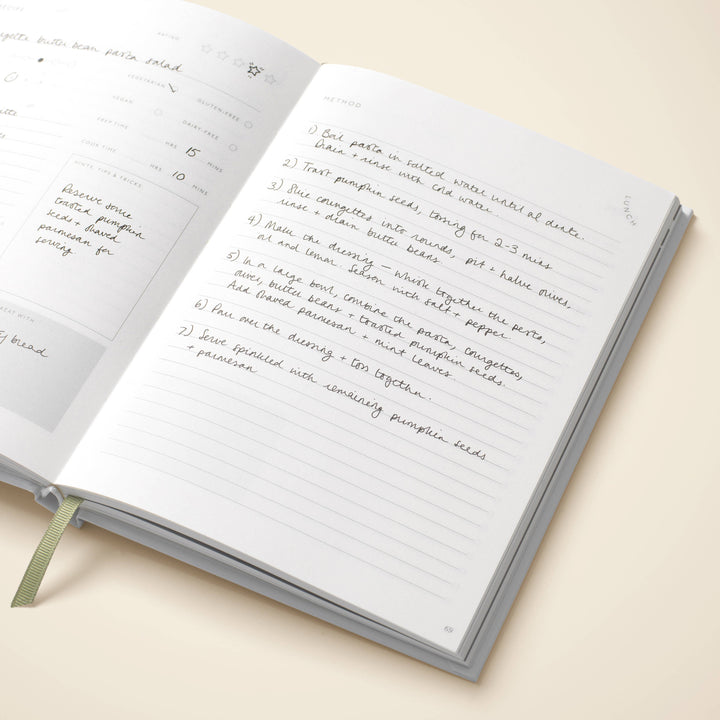 RECIPE
courgette butter bean pasta salad
RATING
VEGETARIAN
VEGAN
GLUTEN-FREE
DAIRY-FREE
PREP TIME HRS 15 MINS
COOK TIME HRS 10 MINS
HINTS, TIPS & TRICKS
Reserve some
toasted pumpkin
seeds + shaved
parmesan for
serving.
EAT WITH
bread
METHOD
LUNCH
1) Boil pasta in salted water until al dente.
Drain + rinse with cold water.
2) Toast pumpkin seeds, tossing for 2-3 mins
3) Slice courgettes into rounds, pit + halve olives,
rinse + drain butter beans
4) Make the dressing – whisk together the pesto,
oil and lemon. Season with salt + pepper.
5) In a large bowl, combine the pasta, courgettes,
olives, butter beans + toasted pumpkin seeds.
Add shaved parmesan + mint leaves.
6) Pour over the dressing + toss together.
7) Serve sprinkled with remaining pumpkin seeds
+ parmesan